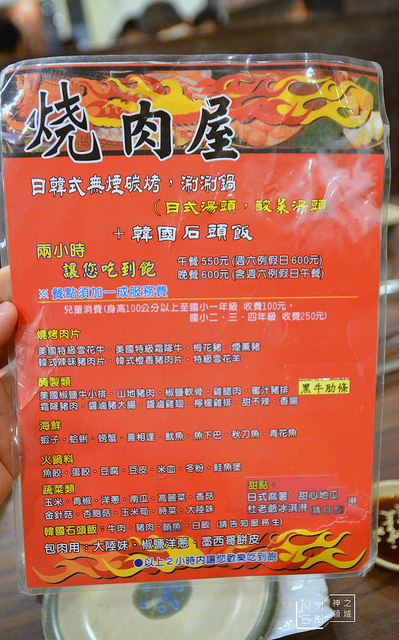 燒肉屋
日韓式無煙碳烤，涮涮鍋
(日式湯頭，酸菜湯頭
+ 韓國石頭飯
兩小時
讓您吃到飽
午餐 550元 (週六例假日 600元)
晚餐 600元 (含週六例假日午餐)
※ 餐點須加一成服務費
兒童消費(身高100公分以上至國小一年級 收費100元，
國小二、三、四年級 收費250元)
燒烤肉片
美國特級雪花牛．美國特級霜降牛．梅花豬．煙薰豬
韓式辣味豬肉片．韓式橙香豬肉片．特級雪花羊
醃製類
美國椒鹽牛小排．山地豬肉．椒鹽軟骨．雞腿肉．蜜汁豬排
黑牛肋條
霜降豬肉．醬滷豬大腸．醬滷雞翅．檸檬雞排．甜不辣．香腸
海鮮
蝦子．蛤蜊．螃蟹．喜相逢．魷魚．魚下巴．秋刀魚．青花魚
火鍋料
魚餃．蛋餃．豆腐．豆皮．米血．冬粉．鮭魚堡
蔬菜類
玉米．青椒．洋蔥．南瓜．高麗菜．香菇
金針菇．杏鮑菇．玉米筍．時菜．大陸妹
甜點：
日式麻薯．甜心地瓜
杜老爺冰淇淋 (請自
韓國石頭飯：牛肉．豬肉．鮪魚．白飯 (請告知服務生)
包肉用：大陸妹．椒鹽洋蔥．墨西哥餅皮
●以上2小時內讓您歡樂吃到飽
神之領域